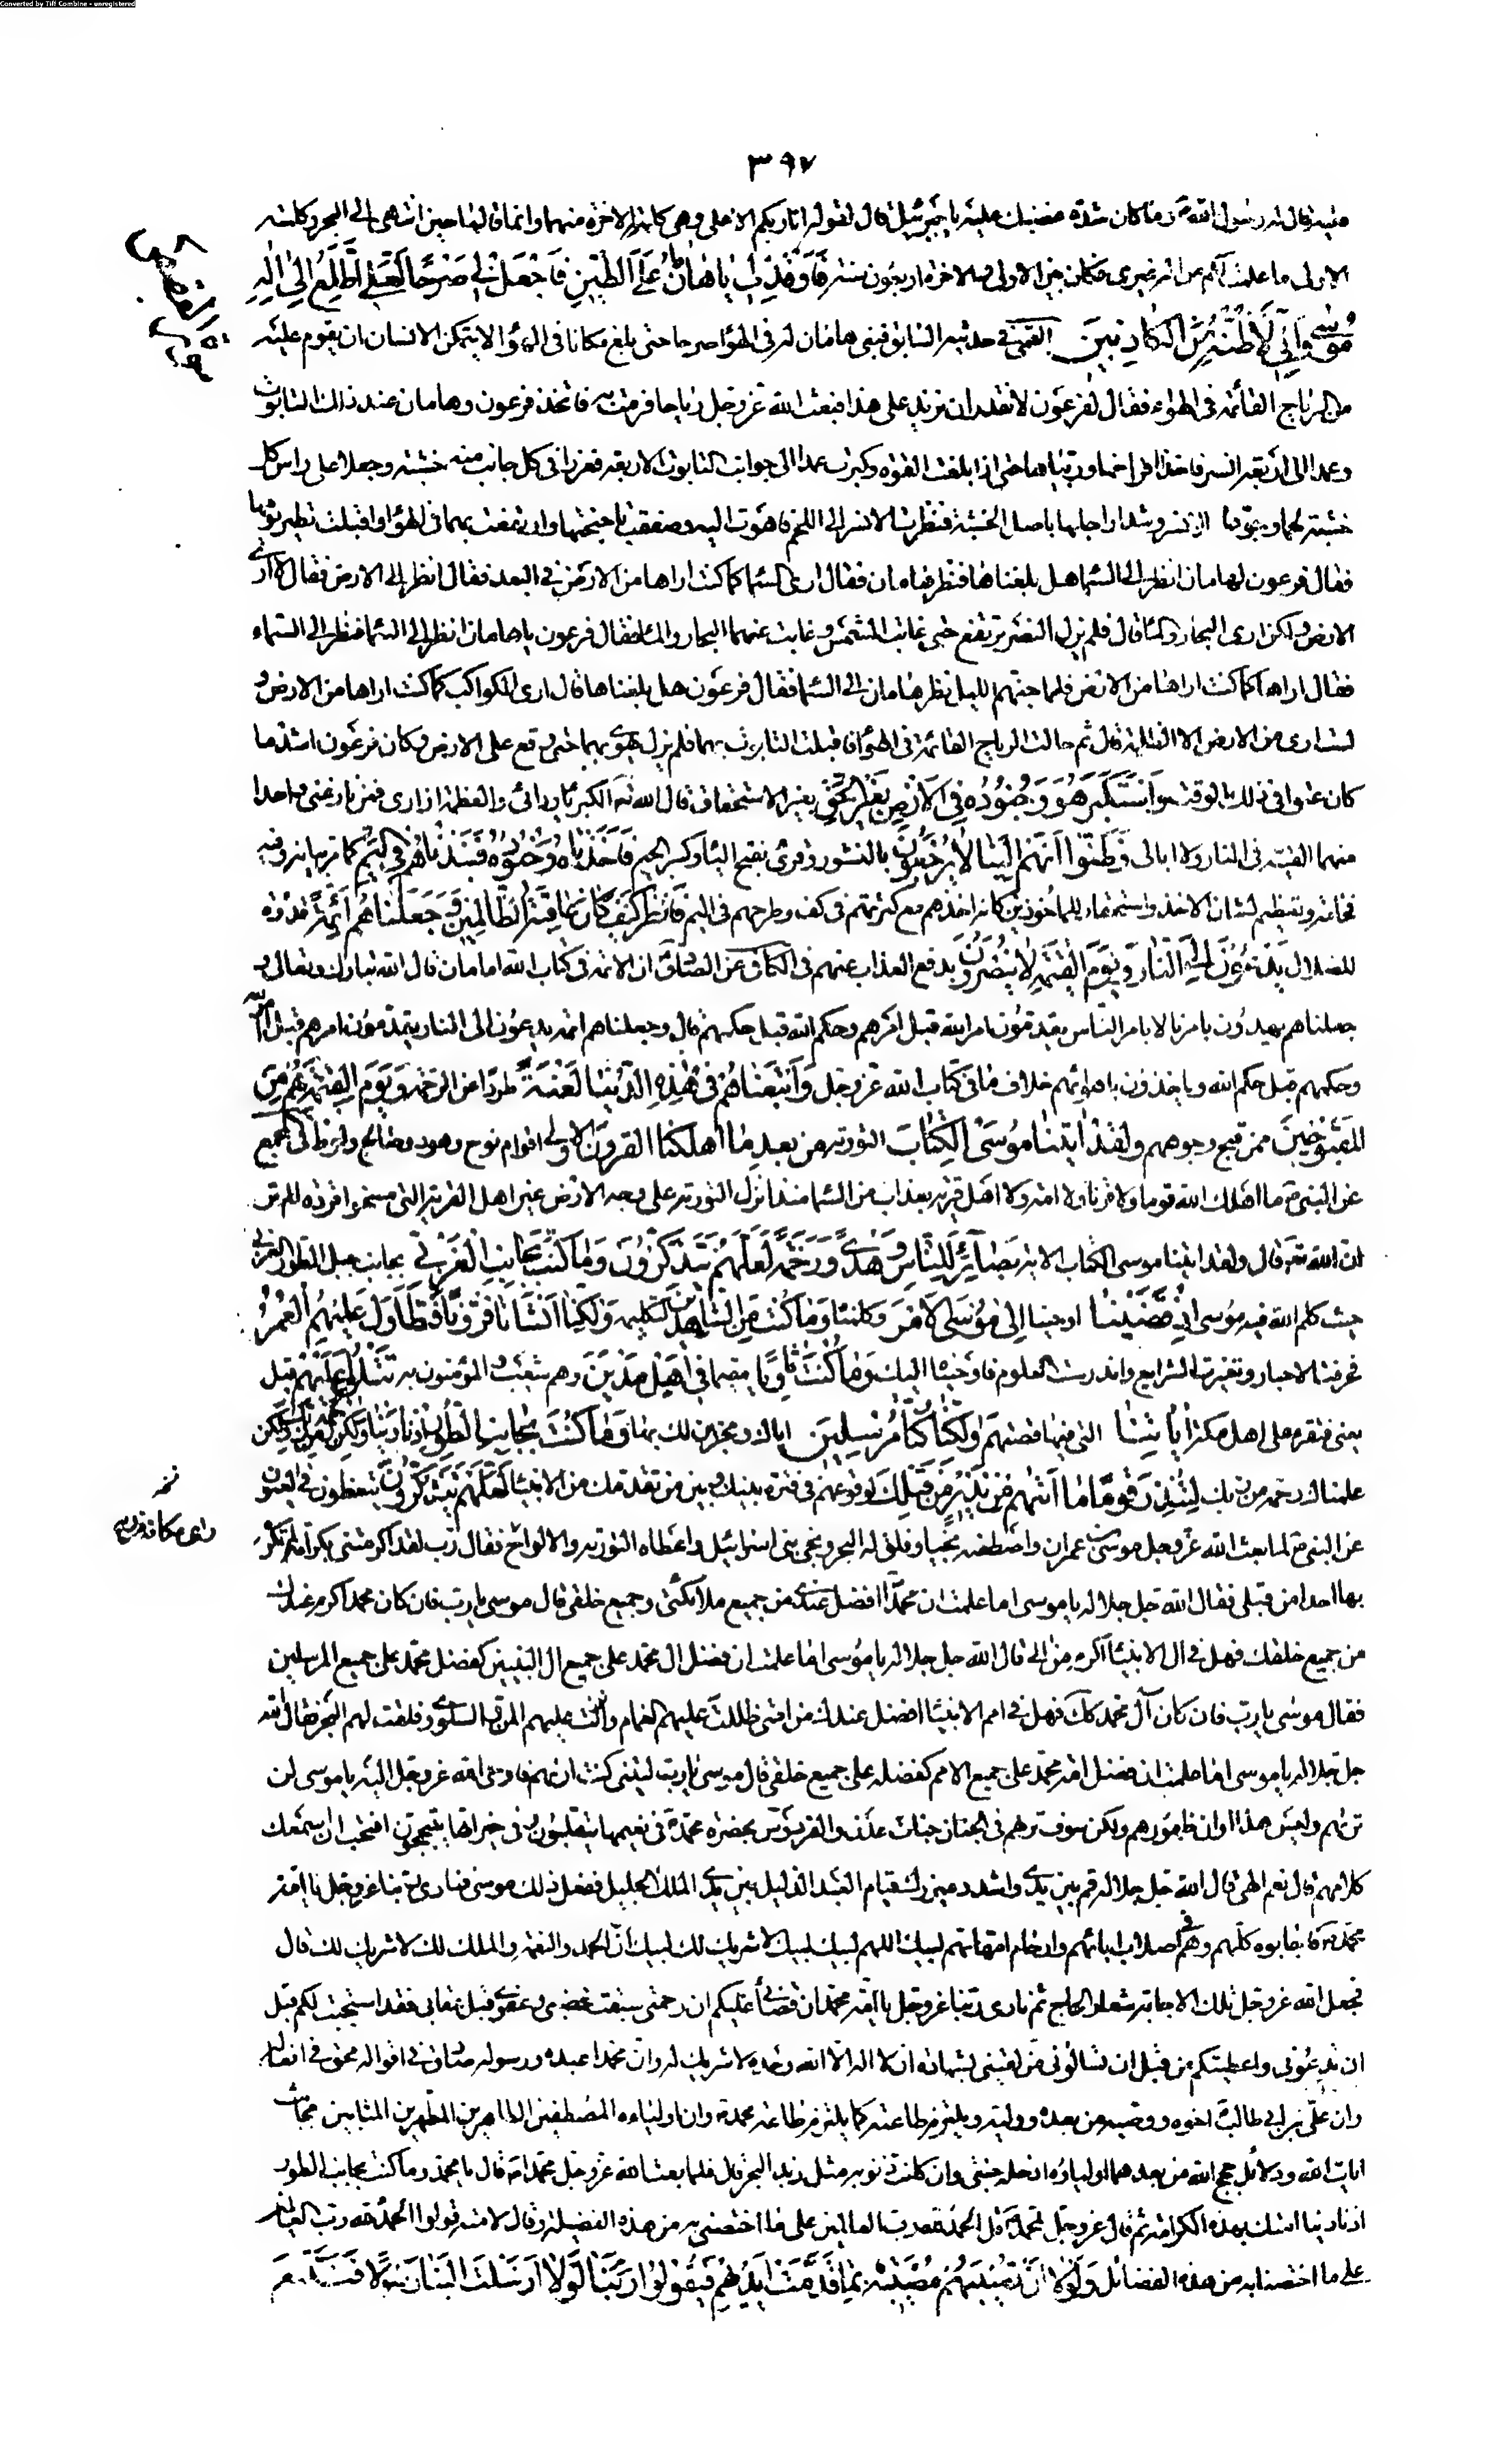 Converted by Tiff Combine - unregistered
٣٩٧
فقال له رسول الله وما كان شدة غضبك عليه يا جبرئيل قال لقوله انا ربكم الاعلى وهى كلمته الاخرة منهما وانما قالها حين انتهى الى البحر وكلمته
الاولى ما علمت لكم من اله غيرى فكان بين الاولى والاخرة اربعون سنة فَاَوْقِدْ لِى يا هامانُ عَلَى الطّينِ فَاجْعَلْ لى صَرْحًا لَعَلّى اَطَّلِعُ اِلى اِلهِ
مُوسى وَاِنّى لَاَظُنُّهُ مِنَ الْكاذِبينَ القمى فى حديثه السابق فبنى هامان له فى الهواء صرحا حتى بلغ مكانا فى الهواء لا يتمكن الانسان ان يقوم عليه
من الرياح القائمة فى الهواء فقال لفرعون لا نقدر ان نزيد على هذا فبعث الله عز وجل رياحا فرمت به فاتخذ فرعون وهامان عند ذلك التابوت
وعمدا الى اربعة انسر فاخذا افراخها وربياها حتى اذا بلغت القوة وكبرت عمدا الى جوانب التابوت الاربعة فغرزا فى كل جانب منه خشبة وجعلا على راس كل
خشبة لحما وجوعا الانسر وشدا ارجلها باصل الخشبة فنظرت الانسر الى اللحم فاهوت اليه وصفقت باجنحتها وارتفعت بهما فى الهواء واقبلت تطير يومها
فقال فرعون لهامان انظر الى السماء هل بلغناها فنظر هامان فقال ارى السماء كما كنت اراها من الارض فى البعد فقال انظر الى الارض فقال لا ارى
الارض ولكن ارى البحار والماء قال فلم يزل النسر يرتفع حتى غابت الشمس وغابت عنهما البحار والماء فقال فرعون يا هامان انظر الى السماء فنظر الى السماء
فقال اراها كما كنت اراها من الارض فلما جنهم الليل نظر هامان الى السماء فقال فرعون هل بلغناها قال ارى الكواكب كما كنت اراها من الارض و
لست ارى من الارض الا الظلمة قال ثم حالت الرياح القائمة فى الهواء فاقبلت التابوت بهما فلم يزل يهوى بهما حتى وقع على الارض وكان فرعون اشد ما
كان عتوا فى ذلك الوقت وَاسْتَكْبَرَ هُوَ وَجُنُودُهُ فِى الْاَرْضِ بِغَيْرِ الْحَقِّ بغير الاستحقاق قال الله تعـ الكبرياء ردائى والعظمة ازارى فمن نازعنى واحدا
منهما القيته فى النار ولا ابالى وَظَنُّوا اَنَّهُمْ اِلَيْنا لا يُرْجَعُونَ بالنشور وقرئ بفتح الياء وكسر الجيم فَاَخَذْناهُ وَجُنُودَهُ فَنَبَذْناهُمْ فِى الْيَمِّ كما مر بيانه وفيه
فخامة وتعظيم لشان الاخذ واستحقار للماخوذين كانه اخذهم مع كثرتهم فى كف وطرحهم فى اليم فَانْظُرْ كَيْفَ كانَ عاقِبَةُ الظّالِمينَ وَجَعَلْناهُمْ اَئِمَّةً قدوة
للضلال يَدْعُونَ اِلَى النّارِ وَيَوْمَ الْقِيمَةِ لا يُنْصَرُونَ بدفع العذاب عنهم فى الكافى عن الصادق ان الائمة فى كتاب الله امامان قال الله تبارك وتعالى و
جعلناهم يهدون بامرنا لا بامر الناس يقدمون امر الله قبل امرهم وحكم الله قبل حكمهم قال وجعلناهم ائمة يدعون الى النار يقدمون امرهم قبل امر الله
وحكمهم قبل حكم الله وياخذون باهوائهم خلاف ما فى كتاب الله عز وجل وَاَتْبَعْناهُمْ فى هذِهِ الدُّنْيا لَعْنَةً طردا عن الرحمة وَيَوْمَ الْقِيمَةِ هُمْ مِنَ
الْمَقْبُوحينَ ممن قبح وجوههم ولقد اتينا موسى الكتاب التورية من بعد ما اهلكنا القرون الاولى اقوام نوح وهود وصالح ولوط فى المجمع
عن النبى ما اهلك الله قوما ولا قرنا ولا امة ولا اهل قرية بعذاب من السماء منذ انزل التورية على وجه الارض غير اهل القرية التى مسخوا قردة الم تر
ان الله تعـ قال ولقد اتينا موسى الكتاب الاية بَصائِرَ لِلنّاسِ وَهُدًى وَرَحْمَةً لَعَلَّهُمْ يَتَذَكَّرُونَ وَما كُنْتَ بِجانِبِ الْغَرْبِىِّ بجانب جبل الطور الغربى
حيث كلم الله فيه موسى اِذْ قَضَيْنا اوحينا اِلى مُوسَى الْاَمْرَ وكلمناه وَما كُنْتَ مِنَ الشّاهِدينَ لتكليمه وَلكِنّا اَنْشَأْنا قُرُونًا فَتَطاوَلَ عَلَيْهِمُ الْعُمُرُ
فحرفت الاخبار وتغيرت الشرايع واندرست العلوم فاوحينا اليك وَما كُنْتَ ثاوِيًا مقيما فى اَهْلِ مَدْيَنَ وهم شعيب والمؤمنون به تَتْلُوا عَلَيْهِمْ قيل
يعنى فتقره على اهل مكة اياتِنا التى فيها قصتهم وَلكِنّا كُنّا مُرْسِلينَ اياك ومخبرين لك بها وَما كُنْتَ بِجانِبِ الطُّورِ اِذْ نادَيْنا وَلكِنْ رَحْمَةً مِنْ رَبِّكَ ولكن
علمناك رحمة من ربك لِتُنْذِرَ قَوْمًا ما اَتيهُمْ مِنْ نَذيرٍ مِنْ قَبْلِكَ لوقوعهم فى فترة بينك وبين من تقدمك من الانبياء لَعَلَّهُمْ يَتَذَكَّرُونَ يتعظون فى العيون
عن النبى لما بعث الله عز وجل موسى بن عمران واصطفيه نجيا وفلق له البحر ونجى بنى اسرائيل واعطاه التورية والالواح فقال رب لقد اكرمتنى بكرامة لم تكرم
بها احدا من قبلى فقال الله جل جلاله يا موسى اما علمت ان محمدا افضل عندى من جميع ملائكتى وجميع خلقى قال موسى يا رب فان كان محمد اكرم عندك
من جميع خلقك فهل فى ال الانبياء اكرم من الى قال الله جل جلاله يا موسى اما علمت ان فضل ال محمد على جميع ال النبيين كفضل محمد على جميع المرسلين
فقال موسى يا رب فان كان آل محمد كك فهل فى امم الانبياء افضل عندك من امتى ظللت عليهم الغمام وانزلت عليهم المن والسلوى وفلقت لهم البحر فقال الله
جل جلاله يا موسى اما علمت ان فضل امة محمد على جميع الامم كفضله على جميع خلقى قال موسى يا رب ليتنى كنت اراهم فاوحى الله عز وجل اليه يا موسى لن
تراهم وليس هذا اوان ظهورهم ولكن سوف تراهم فى الجنان جنات عدن والفردوس بحضرة محمد فى نعيمها يتقلبون وفى خيراتها يتبجحون افتحب ان يسمعك
كلامهم قال نعم الهى قال الله جل جلاله قم بين يدى واشدد ميزرك قيام العبد الذليل بين يدى الملك الجليل ففعل ذلك موسى فنادى ربنا عز وجل يا امة
محمد فاجابوه كلهم وهم فى اصلاب ابائهم وارحام امهاتهم لبيك اللهم لبيك لبيك لا شريك لك لبيك ان الحمد والنعمة والملك لك لا شريك لك قال
فجعل الله عز وجل تلك الاجابة شعار الحاج ثم نادى ربنا عز وجل يا امة محمد ان قضائى عليكم ان رحمتى سبقت غضبى وعفوى قبل عقابى فقد استجبت لكم قبل
ان تدعونى واعطيتكم من قبل ان تسالونى من لقينى بشهادة ان لا اله الا الله وحده لا شريك له وان محمدا عبده ورسوله صادق فى اقواله محق فى افعاله
وان على بن ابى طالب اخوه ووصيه من بعده ووليه ويلتزم طاعته كما يلتزم طاعة محمد وان اولياءه المصطفين الطاهرين المطهرين المنبئين بعجائب
ايات الله ودلائل حجج الله من بعدهما اولياؤه ادخله جنتى وان كانت ذنوبه مثل زبد البحر قال فلما بعث الله عز وجل محمدا قال يا محمد وما كنت بجانب الطور
اذ نادينا امتك بهذه الكرامة ثم قال عز وجل لمحمد قل الحمد لله رب العالمين على ما اختصنى به من هذه الفضيلة وقال لامته قولوا الحمد لله رب العالمين
على ما اختصنا به من هذه الفضائل وَلَوْلا اَنْ تُصيبَهُمْ مُصيبَةٌ بِما قَدَّمَتْ اَيْديهِمْ فَيَقُولُوا رَبَّنا لَوْلا اَرْسَلْتَ اِلَيْنا رَسُولًا فَنَتَّبِعَ